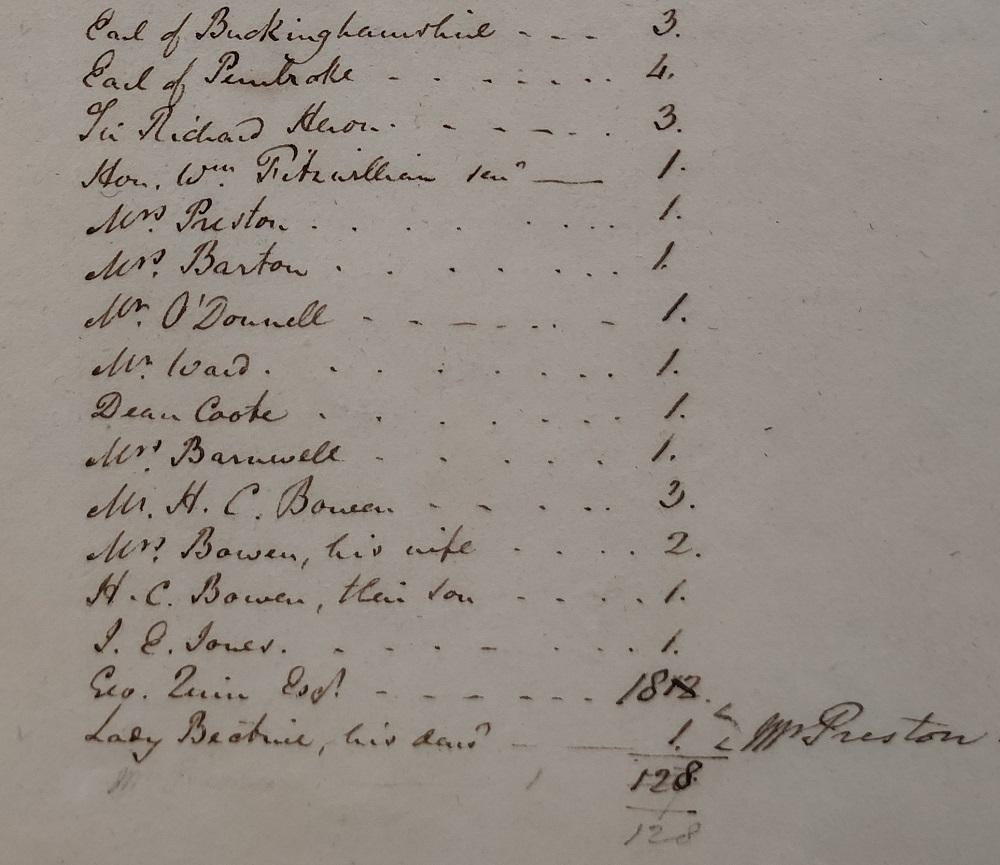 Earl of Buckinghamshire - - - 3.
Earl of Pembroke - - - - - - - 4.
Sir Richard Heron. - - - - - . 3.
Hon. Wm. Fitzwilliam senr — 1.
Mrs. Preston . . . . . . . . 1.
Mrs. Barton . . . . . . . . 1.
Mr. O'Donnell - - - - - . . - 1.
Mr. Ward . . . . . . . . . 1.
Dean Coote . . . . . . . 1.
Mrs. Barnwell - . . . . . 1.
Mr. H. C. Bowen - - - - . . 3.
Mrs. Bowen, his wife . . . . 2.
H. C. Bowen, their son - - . . . 1.
J. E. Jones. . - - - - - . . . 1.
Geo. Quin Esqr. - - - - - . . .
Lady Beatrice, his daur — 1. Mrs Preston
128.
128